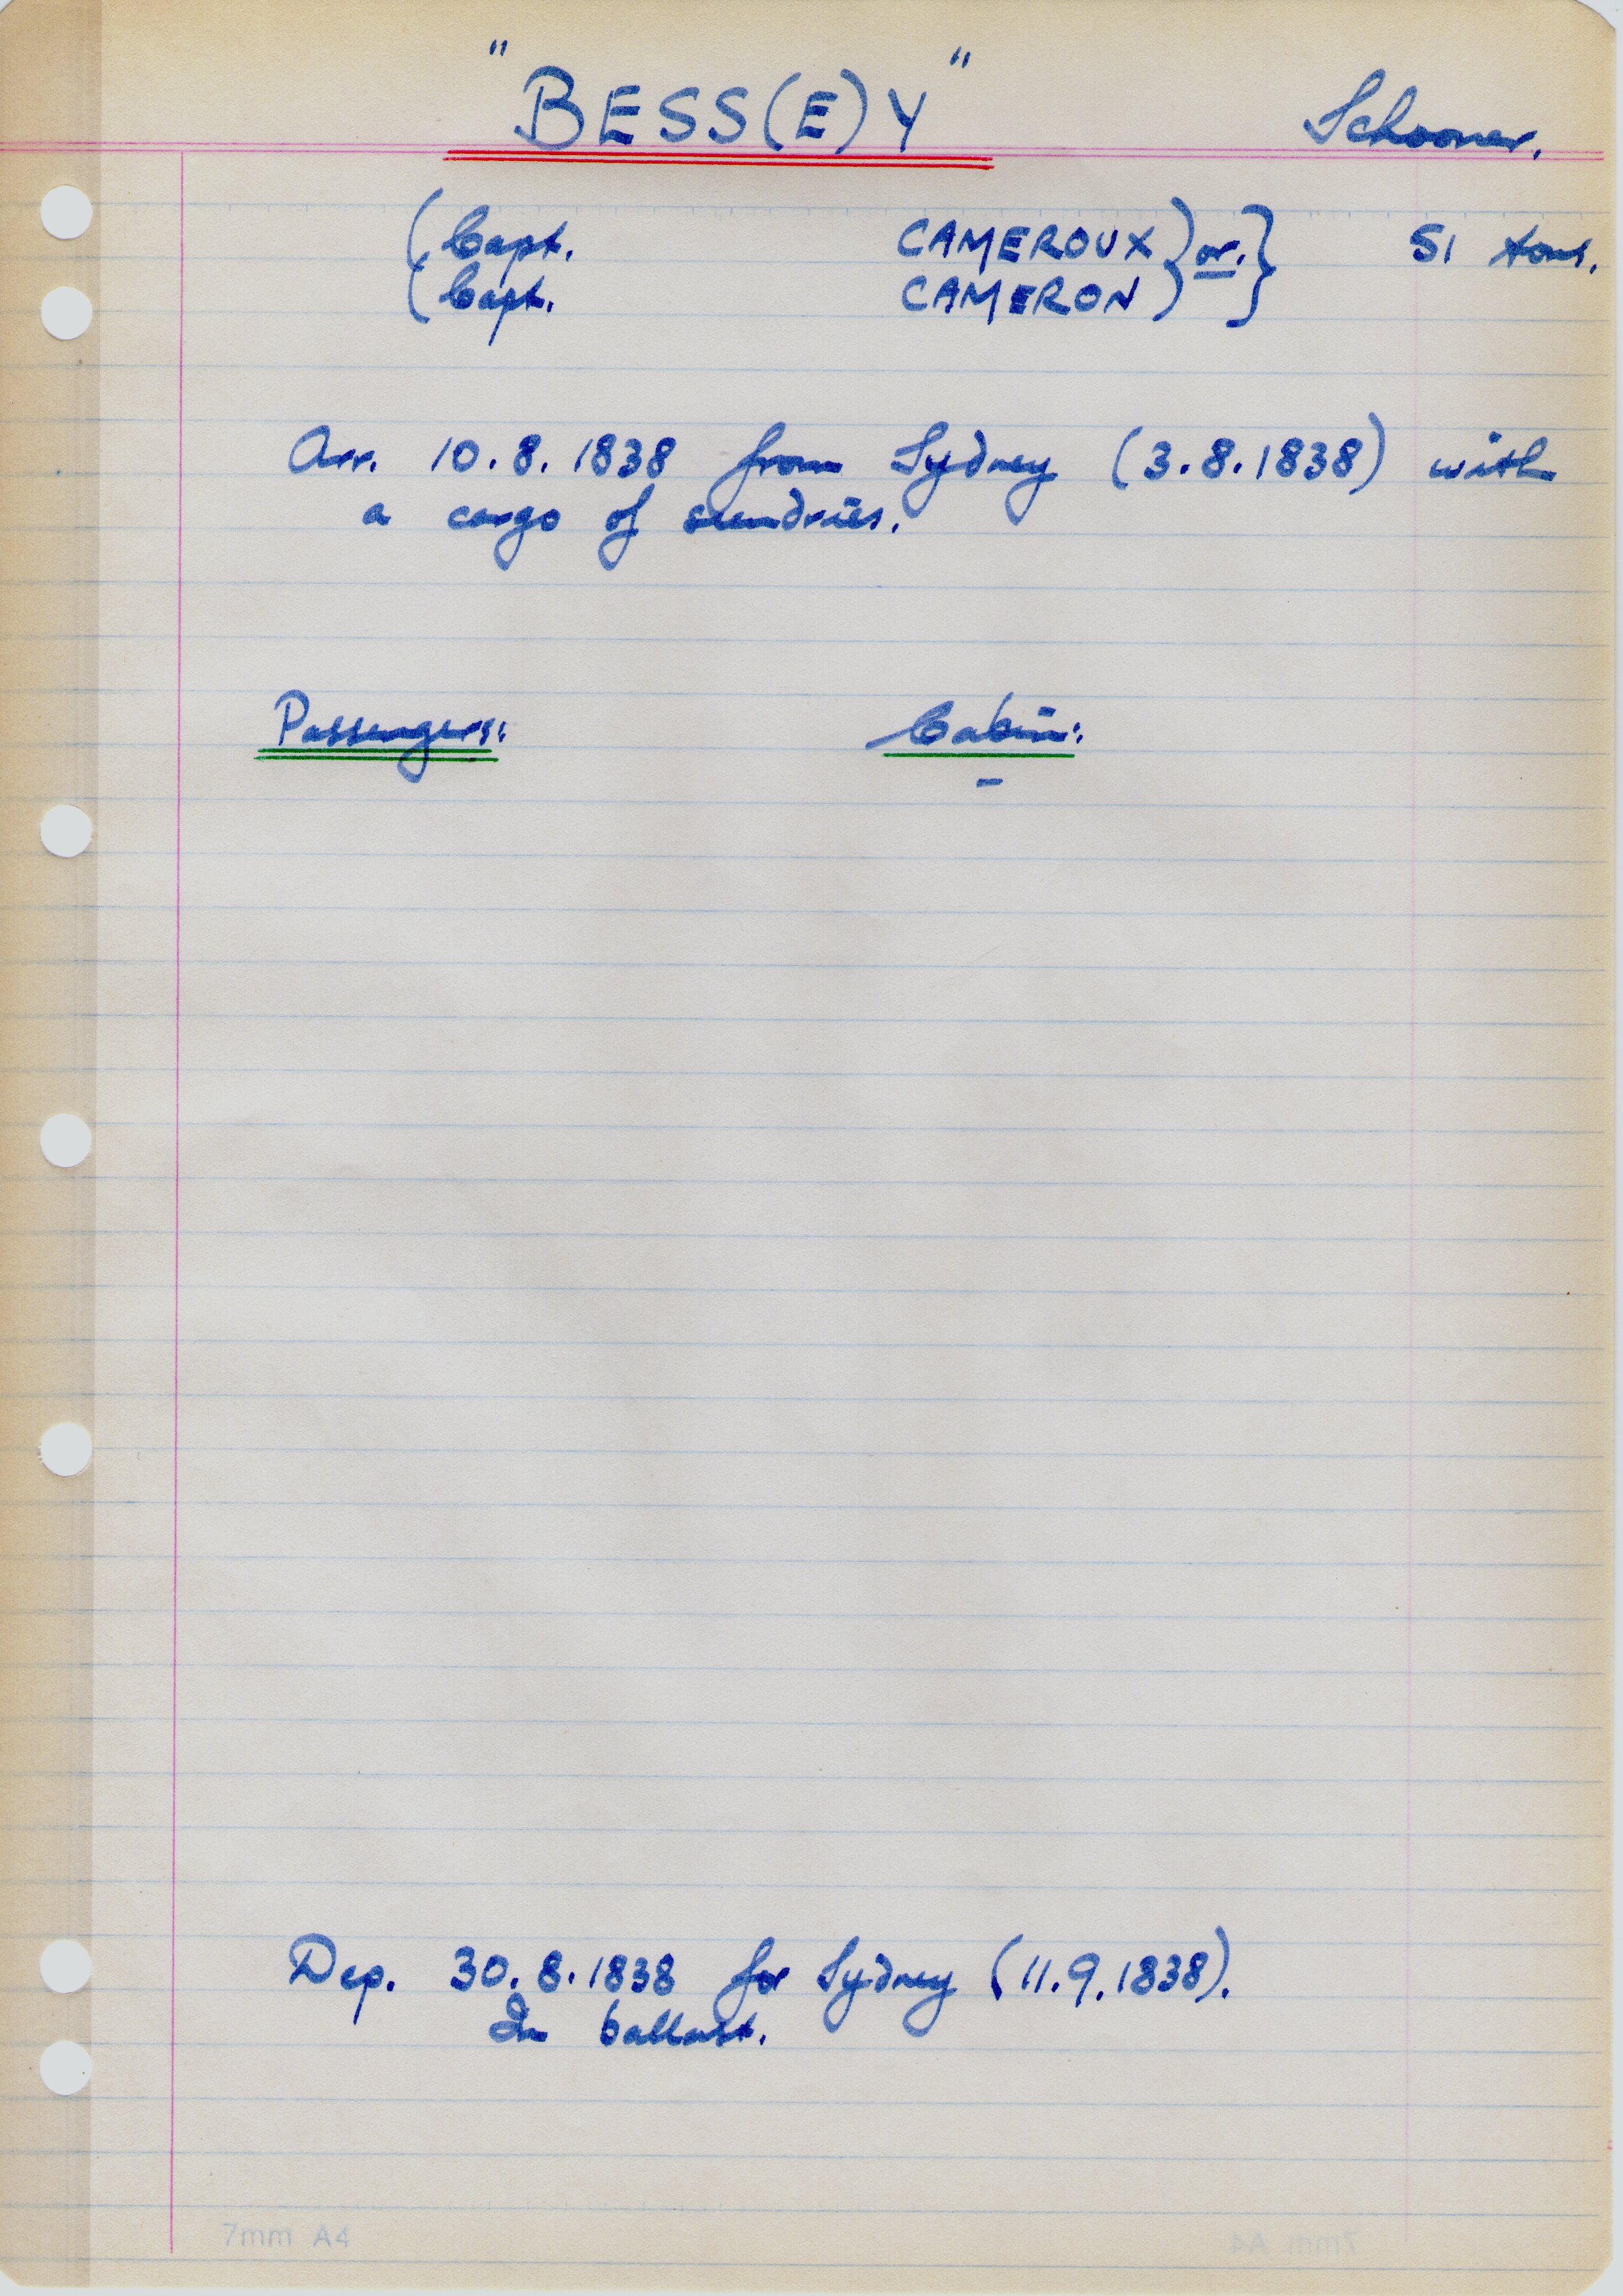 "BESS(E)Y" Schooner.
(Capt. CAMEROUX) or.} 51 tons.
(Capt. CAMERON)
Arr. 10.8.1838 from Sydney (3.8.1838) with
a cargo of sundries.
Passengers: Cabin:
–
Dep. 30.8.1838 for Sydney (11.9.1838).
In ballast.
7mm A4